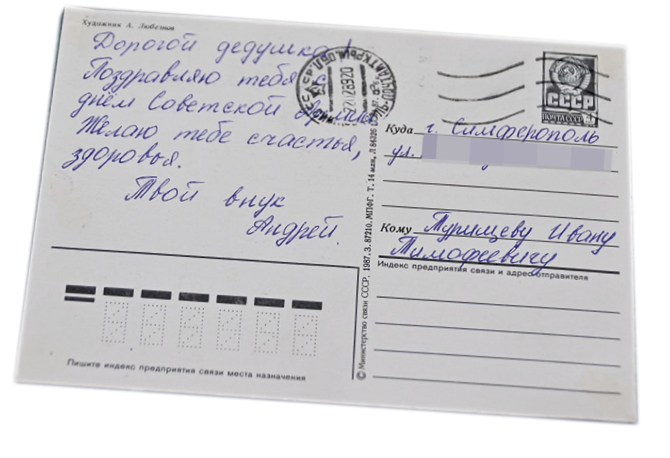 Художник А. Любезнов
Дорогой дедушка!
Поздравляю тебя с
днём Советской Армии.
Желаю тебе счастья,
здоровья.
Твой внук
Андрей.
СССР
ПОЧТА СССР
Куда г. Симферополь
ул.
Кому Турищеву Ивану
Тимофеевичу
Индекс предприятия связи и адрес отправителя
© Министерство связи СССР, 1987. З. 87210. МПФГ. Т. 14 млн.
Пишите индекс предприятия связи места назначения